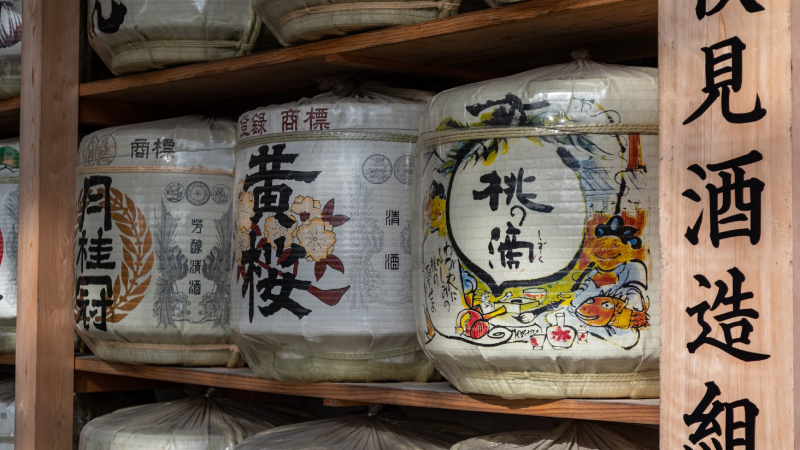 商標
月桂冠
芳醇清酒
登録 商標
黄桜
清酒
桃の滴
しずく
わが衣に
伏見酒造組